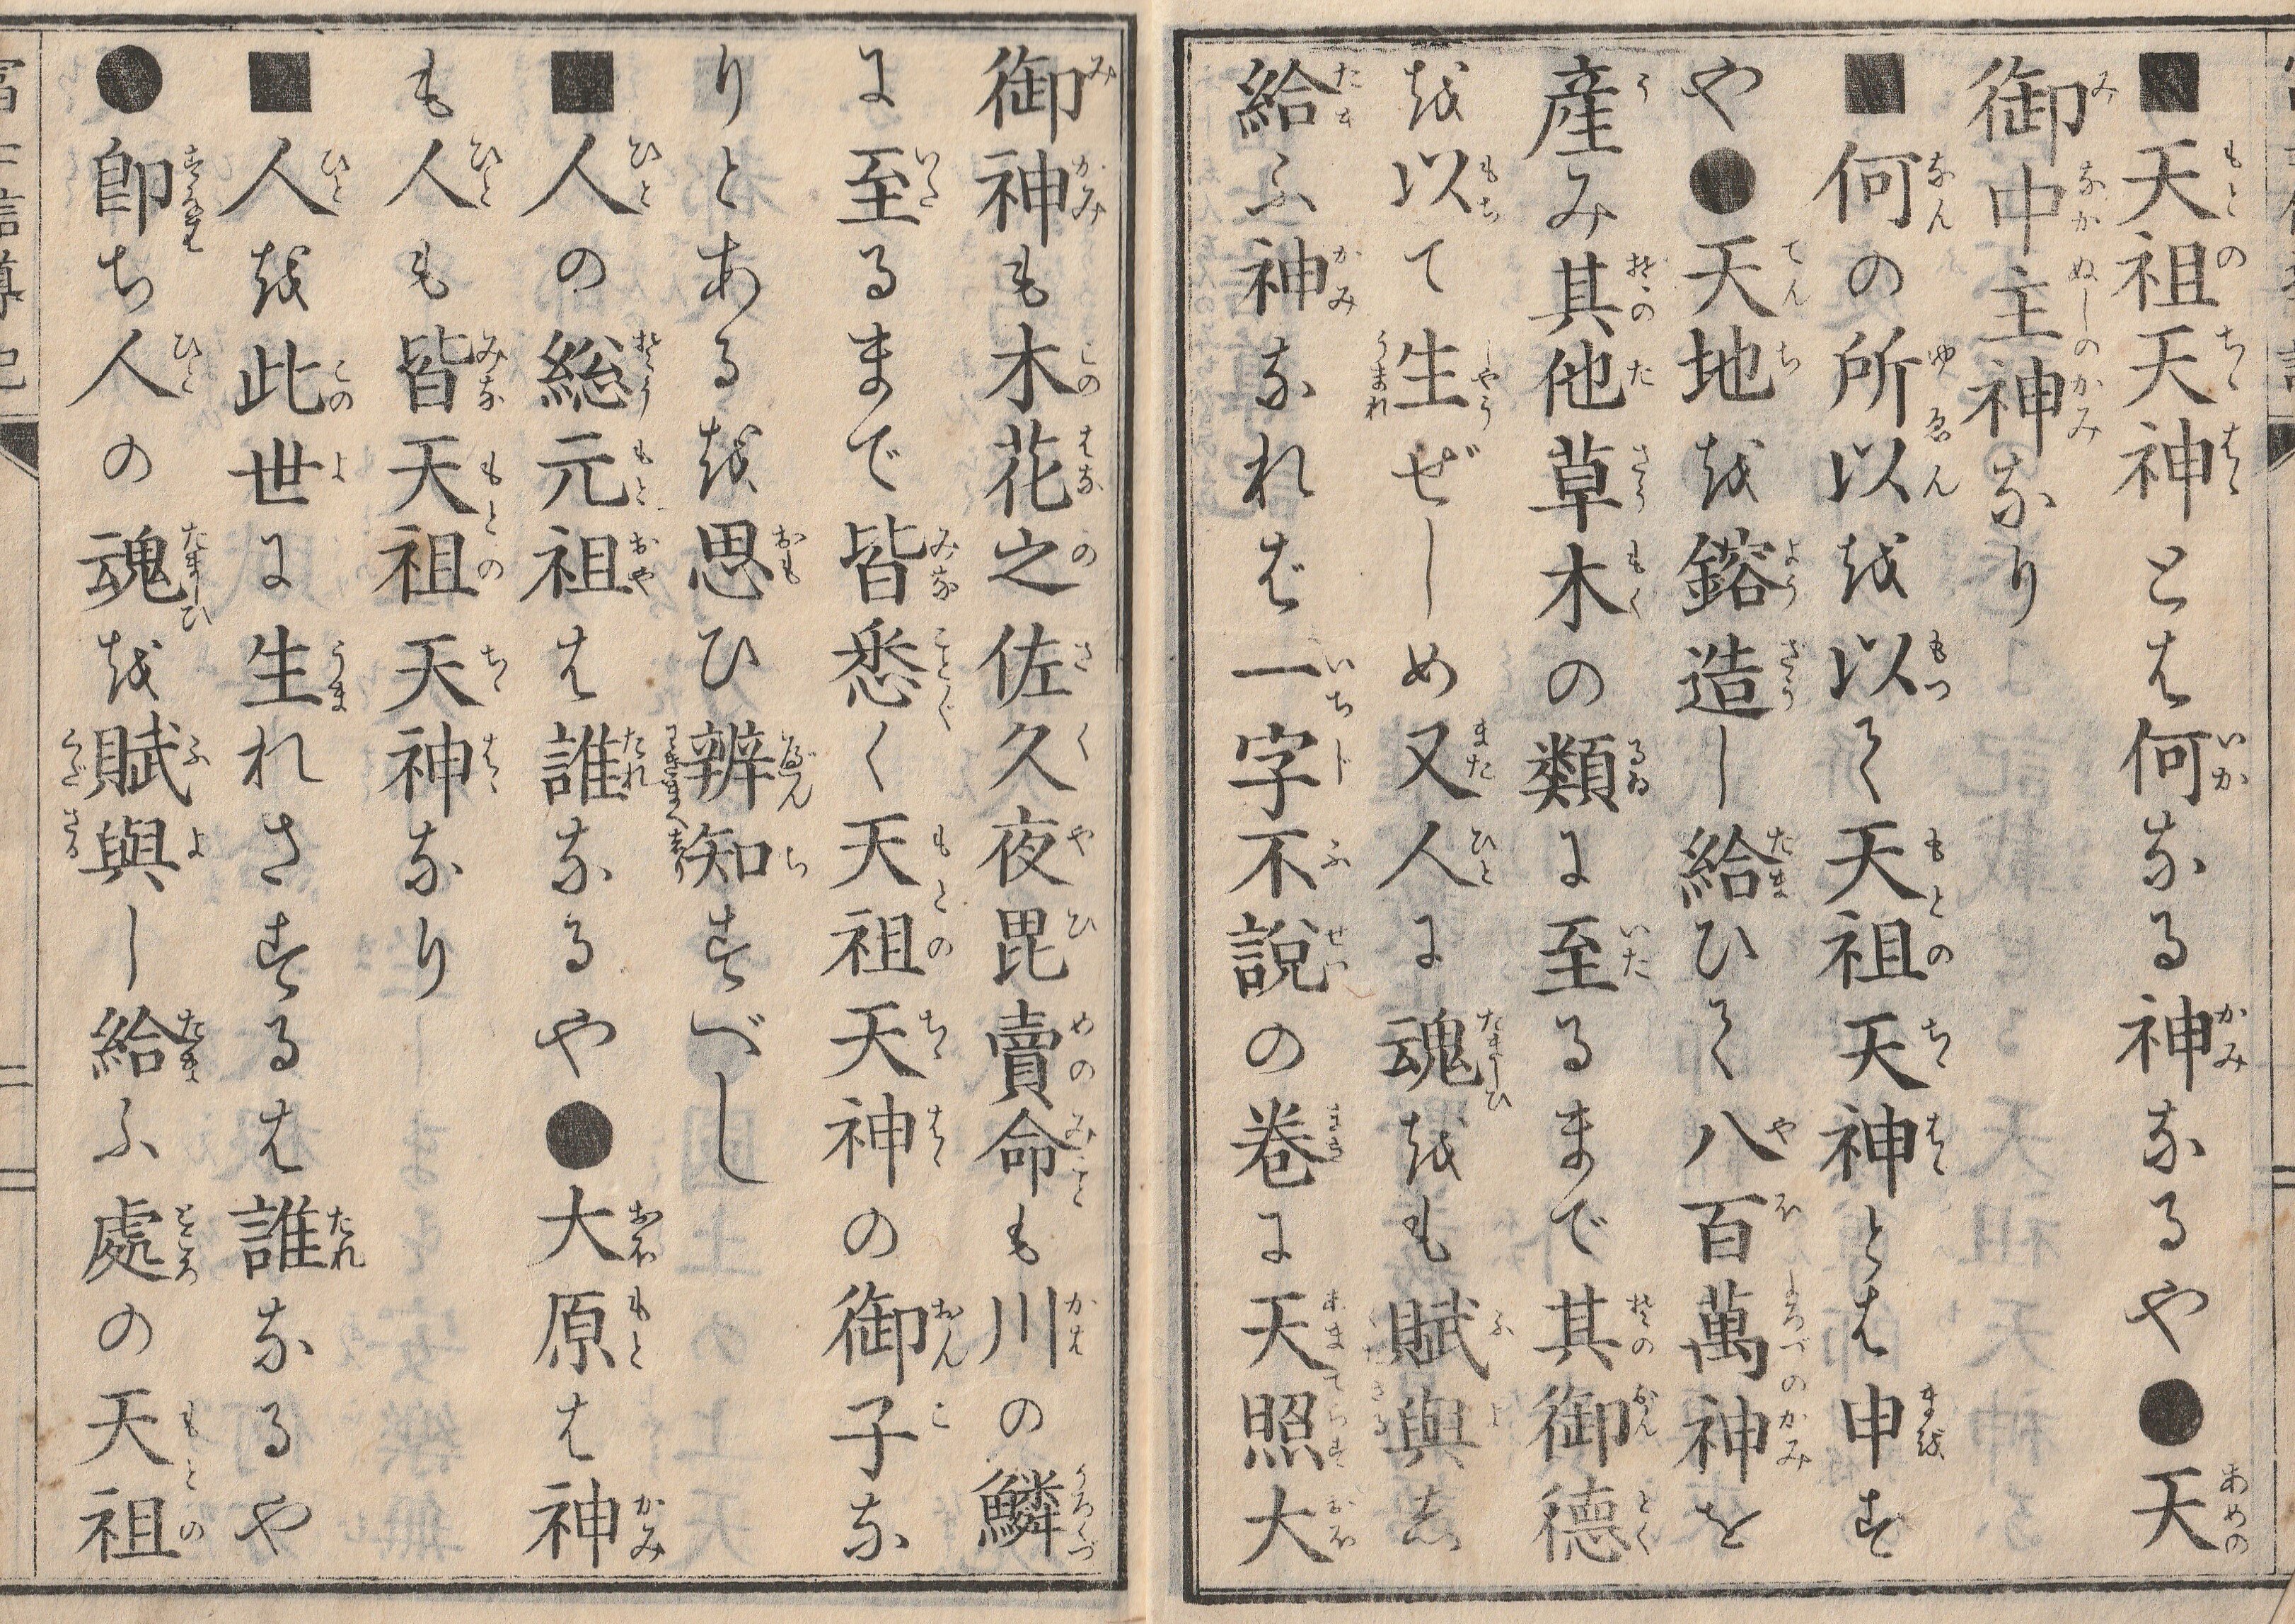 ■天祖天神とは何なる神なるや●天
御中主神なり
■何の所以を以て天祖天神とは申す
や●天地を鎔造し給ひて八百萬神を
産み其他草木の類に至るまで其御德
を以て生ぜしめ又人に魂をも賦與し
給ふ神なれば一字不說の卷に天照大
御神も木花之佐久夜毘賣命も川の鱗
に至るまで皆悉く天祖天神の御子な
りとあるを思ひ辨知すべし
■人の総元祖は誰なるや●大原は神
も人も皆天祖天神なり
■人を此世に生れさするは誰なるや
●卽ち人の魂を賦與し給ふ處の天祖